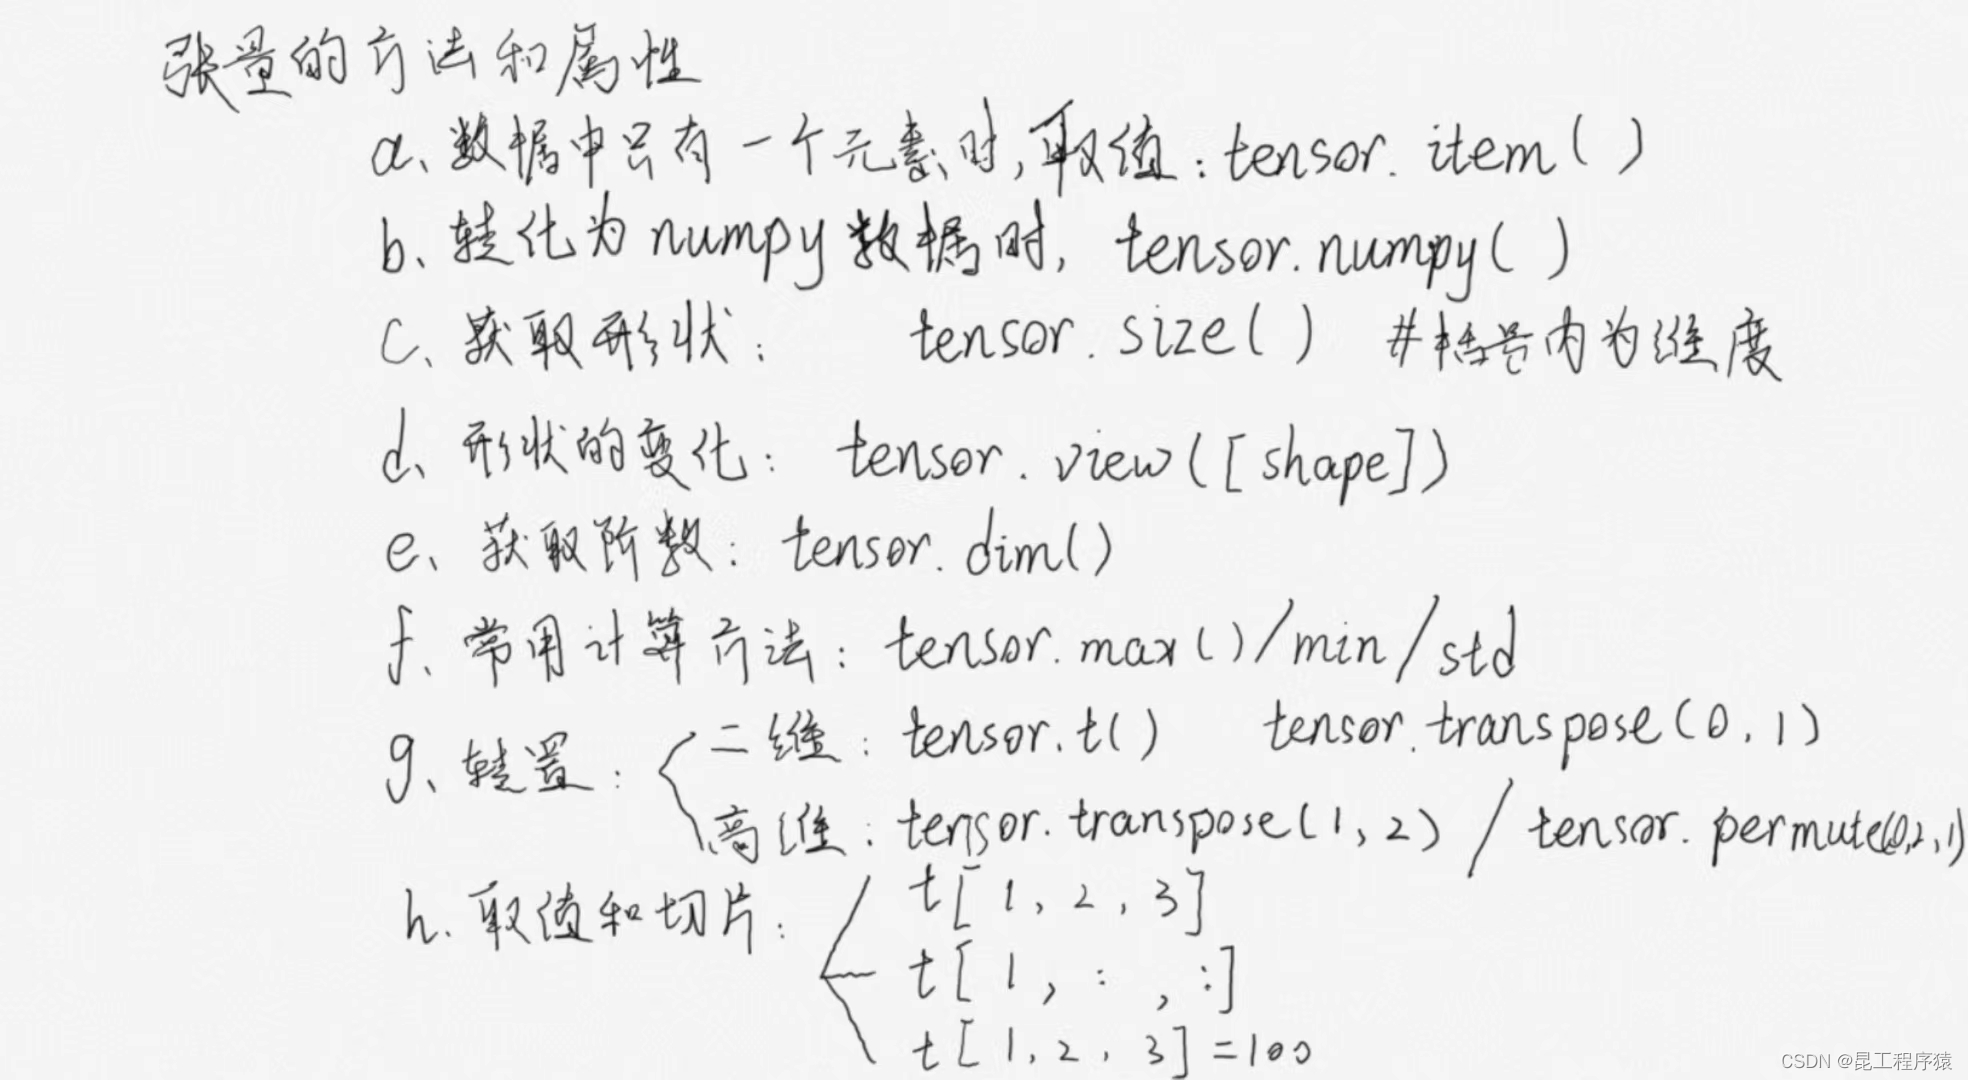 张量的方法和属性
a、数据中只有一个元素时,取值:tensor.item()
b、转化为numpy数据时,tensor.numpy()
c、获取形状: tensor.size() #括号内为维度
d、形状的变化:tensor.view([shape])
e、获取阶数:tensor.dim()
f、常用计算方法:tensor.max()/min/std
g、转置:
二维:tensor.t() tensor.transpose(0,1)
高维:tensor.transpose(1,2) / tensor.permute(0,2,1)
h.取值和切片:
t[1,2,3]
t[1,:,:]
t[1,2,3]=100
CSDN @昆工程序猿